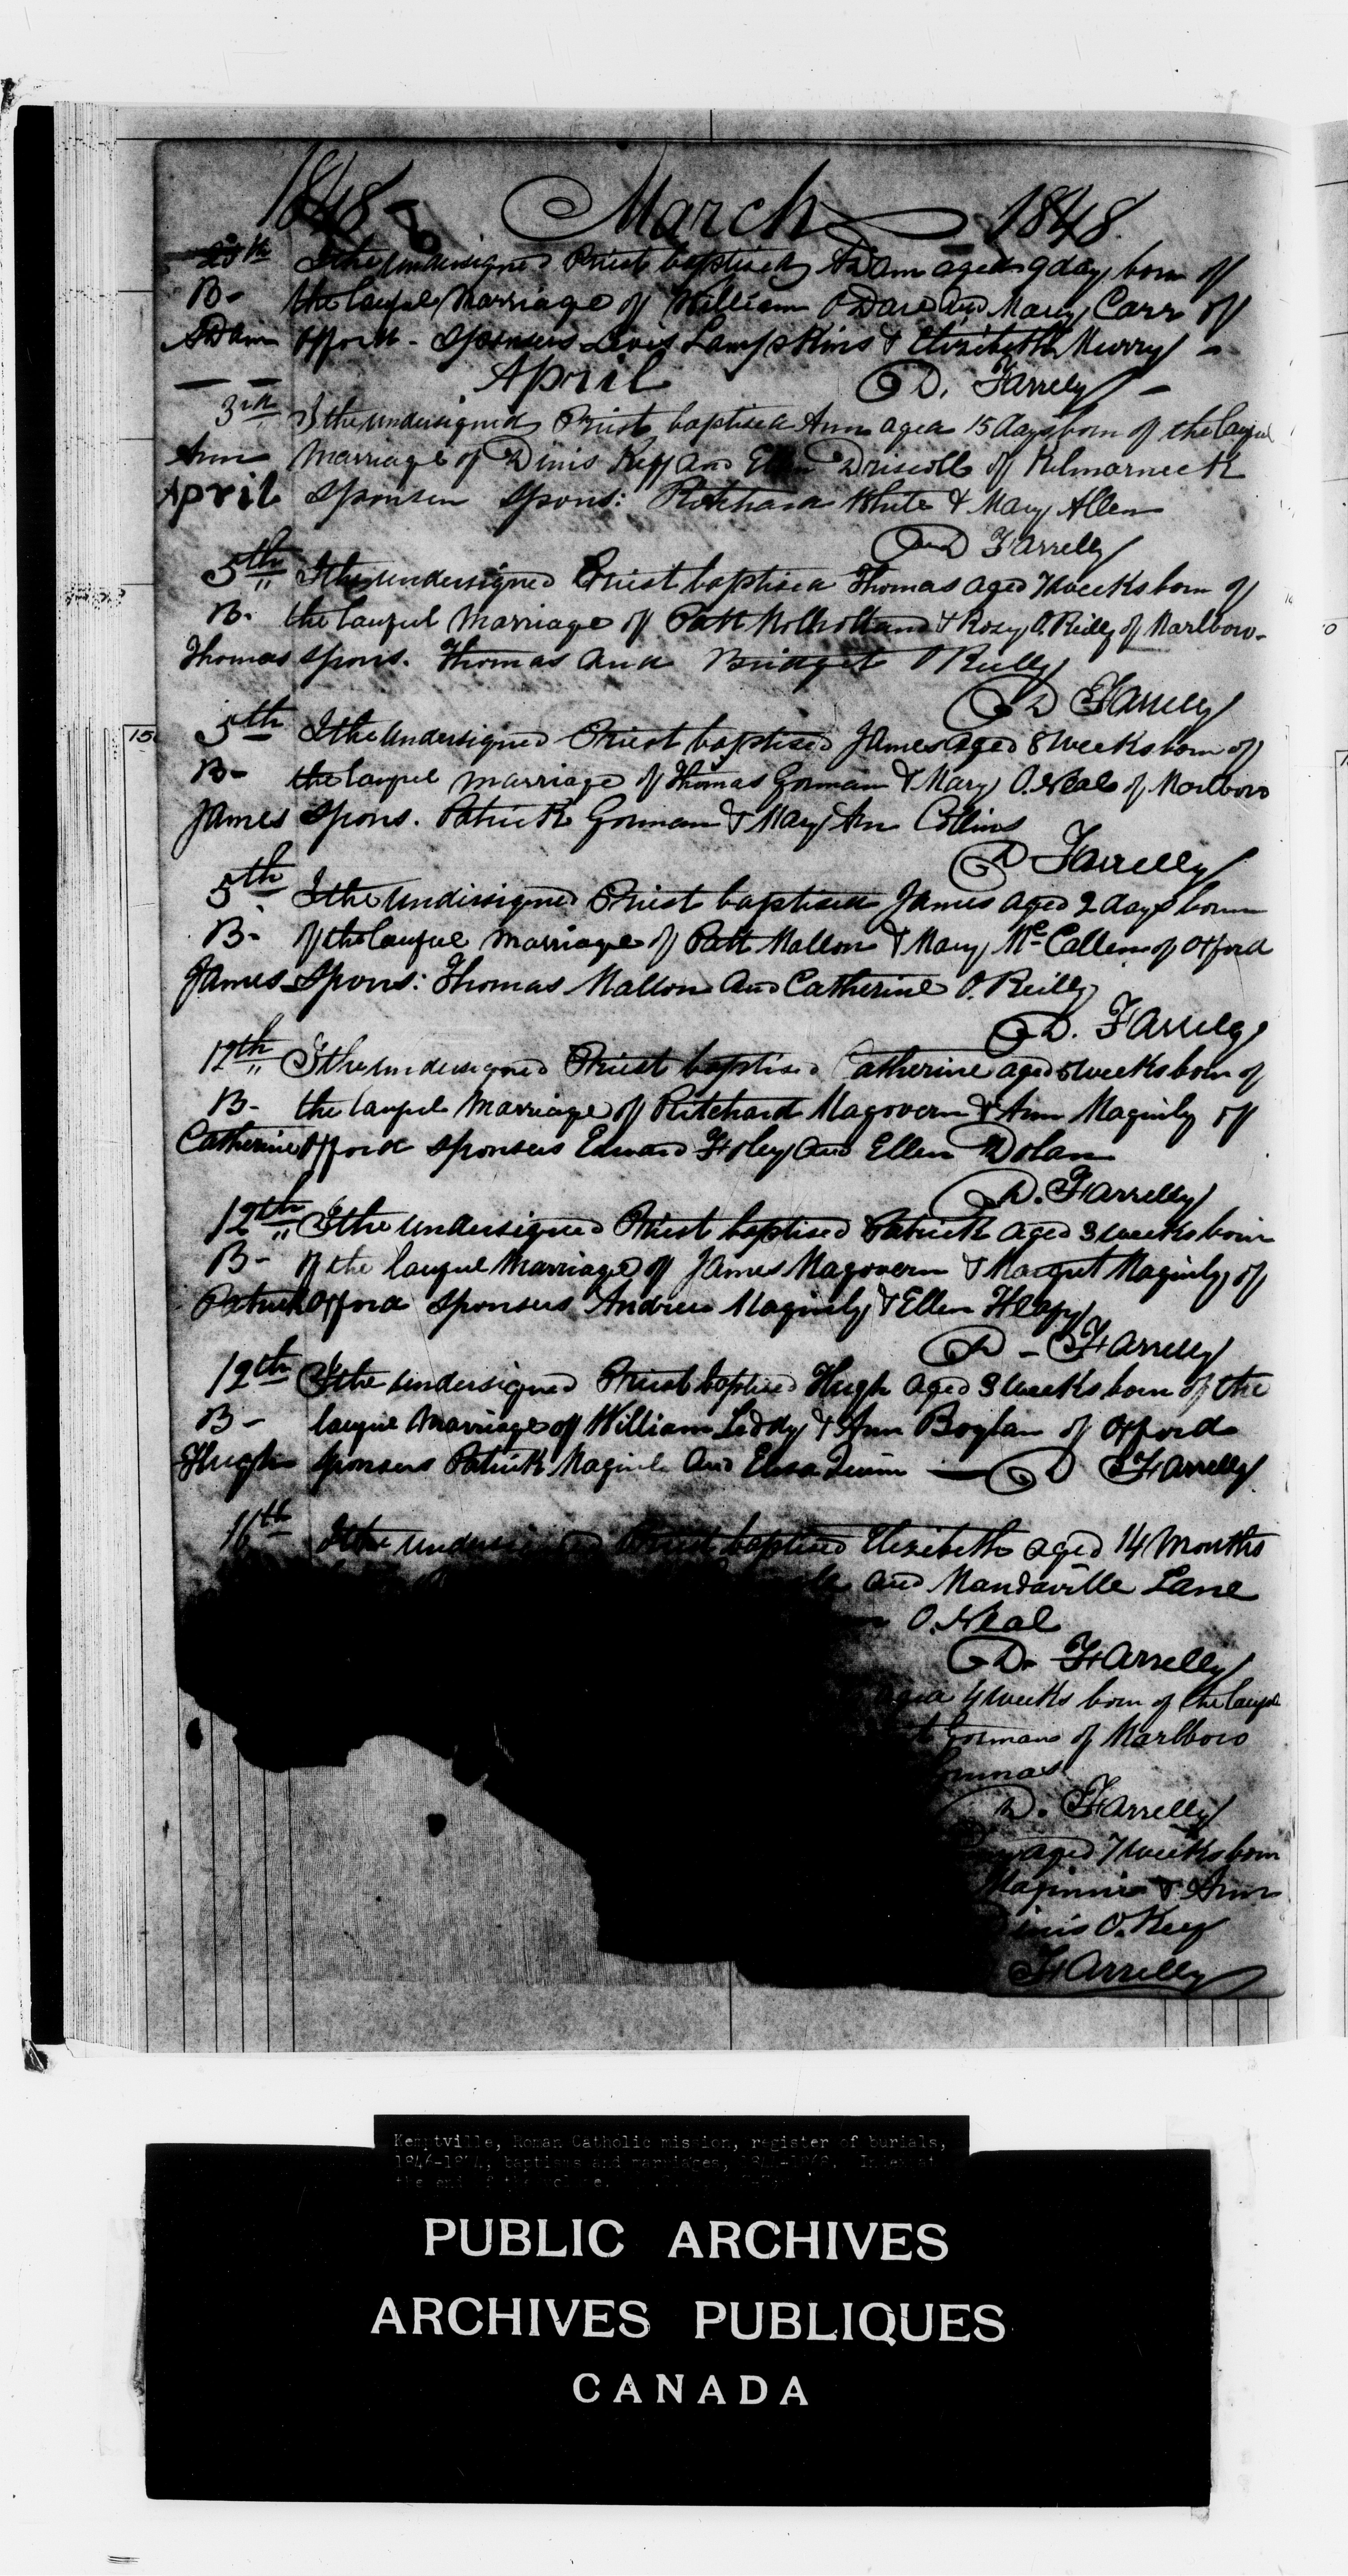 1848 - March - 1848.
28th I the undersigned Priest baptised Adam aged 9 days born of
B- the lawful Marriage of William O Dare and Mary Carr of
Adam Offord - Sponsers Levis Lampskins & Elizibeth Murry -
April D. Farrelly -
3rd I the undersigned Priest baptised Ann aged 15 days born of the lawful
Ann Marriage of Dinis Keff and Ellen Driscoll of Kilmarneck
April sponsen spons: Ritchard White & Mary Allen
D Farrelly
5th I the undersigned Priest baptised Thomas aged 7 weeks born of
B. the lawful Marriage of Patt Molholland & Rosy O.Reilly of Marlboro-
Thomas spons. Thomas and Bridget O Reilly
D Farrelly
15
5th I the undersigned Priest baptised James aged 8 weeks born of
B- the lawful marriage of Thomas Gorman & Mary O.Neal of Marlboro
James Spons. Patrick Gorman & Mary Ann Collins
D Farrelly
5th I the undisigned Priest baptised James aged 2 days born
B- of the lawful Marriage of Patt Mallon & Mary Mc Callen of Offord
James Spons: Thomas Mallon and Catherine O. Reilly
D. Farrelly
12th I the undersigned Priest baptised Catherine aged 5 weeks born of
B- the lawful Marriage of Ritchard Magovern & Ann Maginly of
Catherine Offord sponsers Edward Foley and Ellen Dolan
D. Farrelly
12th I the undersigned Priest baptised Patrick aged 3 weeks born
B- of the lawful Marriage of James Magovern & Margret Maginly of
Patrick Offord sponsers Andrew Maginly & Ellen Heapy
D - Farrelly
12th I the undersigned Priest baptised Hugh aged 3 weeks born of the
B- lawful Marriage of William Liddy & Ann Boylan of Offord
Hugh sponsers Patrick and Elisa Quinn - D Farrelly
16th I the undersigned Priest baptised Elizibeth aged 14 Months
and Mandaville Lane
O.Neal
D. Farrelly
aged 4 weeks born of the lawful
Gorman of Marlboro
D. Farrelly
aged 7 weeks born
Maginnis & Ann
Dinis O.Keef
Farrelly
Kemptville, Roman Catholic mission, register of burials,
baptisms and marriages, Index at
the end of the volume.
PUBLIC ARCHIVES
ARCHIVES PUBLIQUES
CANADA